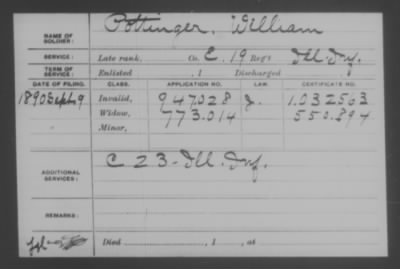 NAME OF SOLDIER: Pottinger, William
SERVICE: Late rank, Co. E, 19 Reg't Ill. Inf.
TERM OF SERVICE: Enlisted , 1 Discharged , 1
DATE OF FILING. CLASS. APPLICATION NO. LAW. CERTIFICATE NO.
1890 Sept 9 Invalid, 947.028 J. 1.032563
Widow, 773.014 550.894
Minor,
ADDITIONAL SERVICES: C 23 - Ill. Inf.
REMARKS:
Died , 1 , at